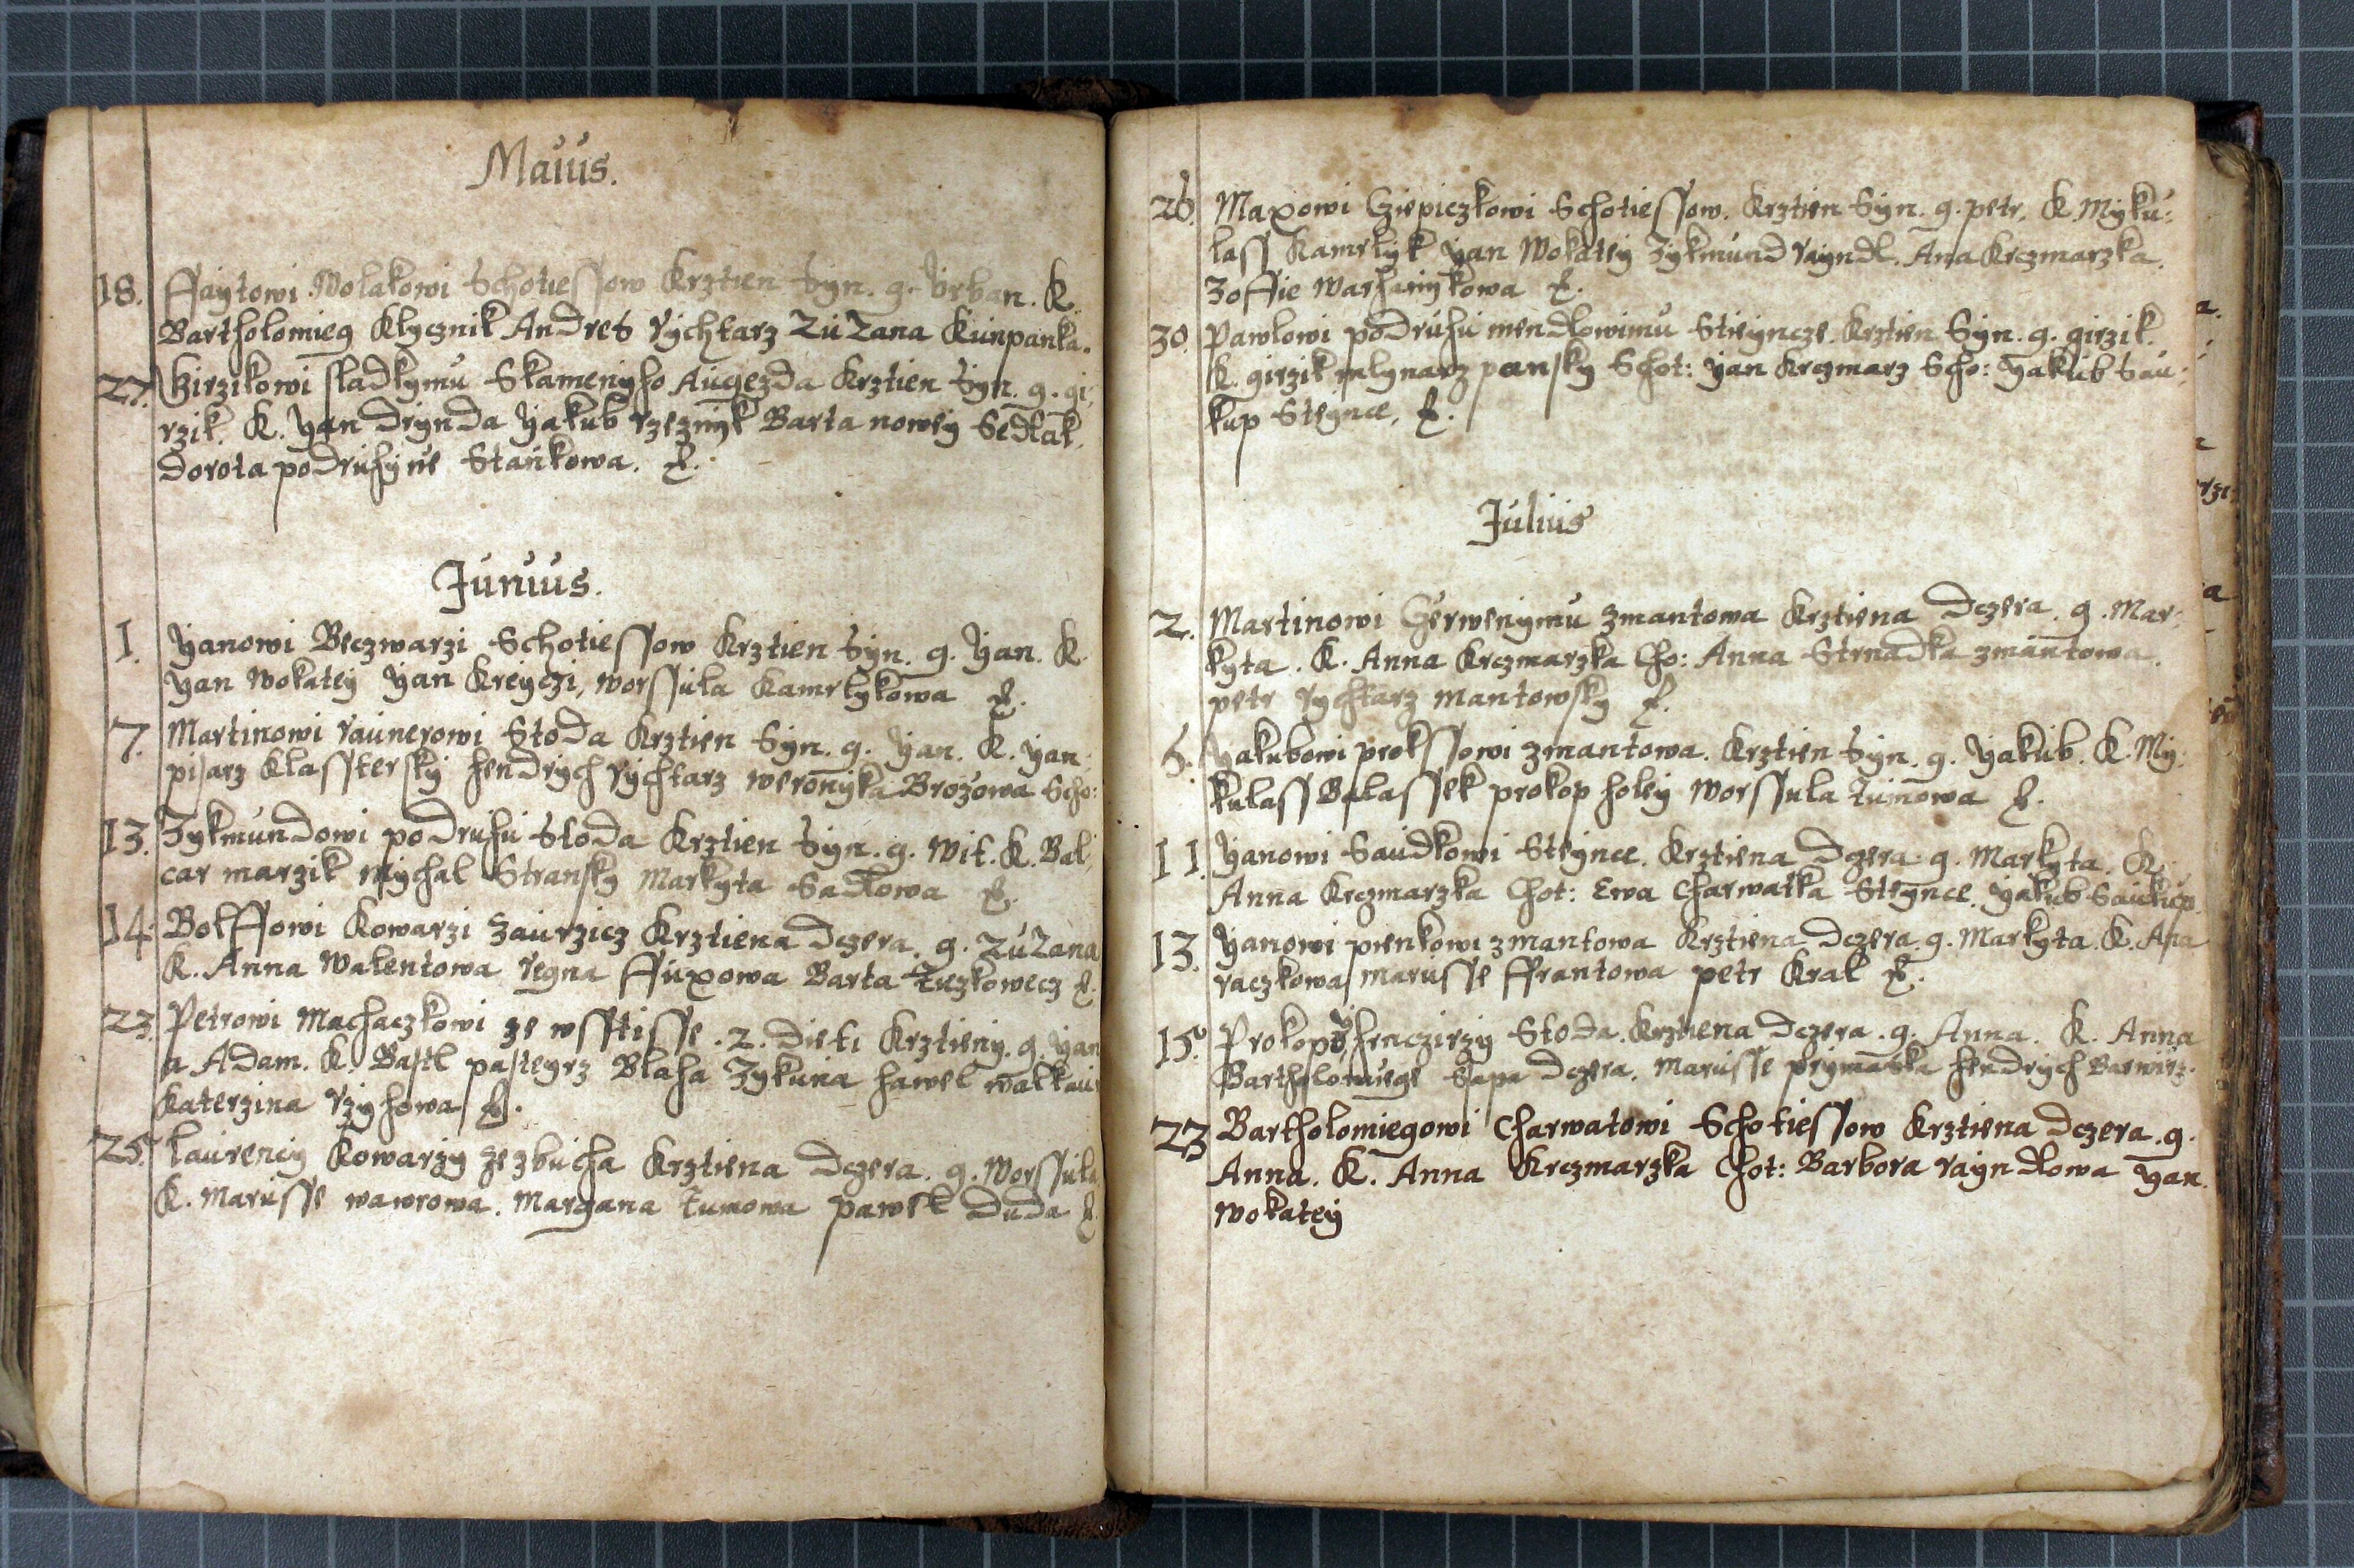 Maius.
18. Ffaytowi Wolakowi Schotiessow Krztien Syn. g. Vrban. K.
Bartholomieg Klycznik Andres Rychtarz ZuZana Kunpanka.
27. Girzikowi sladkymu Skamenyho Augezda Krztien Syn. g. gi:
rzik. K. Yan Drynda Yakub rzeznyk Barta nowey Sedlak.
Dorota podruhyne Stankowa.
Junius.
1. Yanowi Beczwarzi Schotiessow Krztien Syn. g. Yan. K.
Yan Wokatey Yan Kreyczi, worssula Kamrlykowa
7. Martinowi raunerowi Stoda Krztien Syn. g. Yan. K. Yan
pisarz Klassterský hendrych rychtarz weronyka Brozowa Scho:
13. Zykmundowi podruhu Stoda Krztien Syn. g. Wit. K. Bal:
car marzik mychal Stransky Markyta Sadlowa
14. Bolffowi Kowarzi Zaurzicz Krztiena Dczera. g. ZuZana
K. Anna Walentowa regna ffuxowa Barta Tuczkowecz
23. Petrowi Machaczkowi ze wsstisse. 2. Dieti Krztieny. g. Yan
a Adam. K. Bastl pasteyrz Blaha Zykuna hawel
Katerzina rzyhowa
25. Laurency Kowarzy ze zbucha Krztiena Dczera. g. Worssula
K. Marusse wawrowa. Margana tumowa pawel Duda
26. Maxowi Cziepiczkowi Schotiessow. Krztien Syn. g. petr. K. Myku:
lass Kamrlyk Yan Wokatey Zykmund rayndl. Ana Krczmarzka.
Zoffie
30. Pawlowi podruhu mendlowimu Stieyncze. Krztien Syn. g. girzik.
K. girzik mlynarz pansky Schot: Yan Krczmarz Scho: Yakub Sau:
kup Steynce,
Julius
2. Martinowi Czerwenymu zmantowa Krztiena Dczera. g. Mar:
kyta. K. Anna Krczmarzka Cho: Anna Strnadka zmantowa.
petr rychtarz mantowsky
6. Yakubowi prokssowi zmantowa. Krztien Syn. g. Yakub. K. My:
kulass Balassek prokop holey Worssula tumowa
11. Yanowi Saudkowi Steynce. Krztiena Dczera g. Markyta. K.
Anna Krczmarzka Chot: Ewa Charwatka Steynce. Yakub Saukup.
13. Yanowi pienkowi zmantowa Krztiena Dczera. g. Markyta. K. Ana
raczkowa, Marusse ffrantowa petr Kral
15. Stoda. Krztiena Dczera. g. Anna. K. Anna
Bartholomiege Sapa Dczera. Marusse prymaska hendrych
23 Bartholomiegowi Charwatowi Schotiessow Krztiena Dczera. g.
Anna. K. Anna Krczmarzka Chot: Barbora rayndlowa Yan.
Wokatey